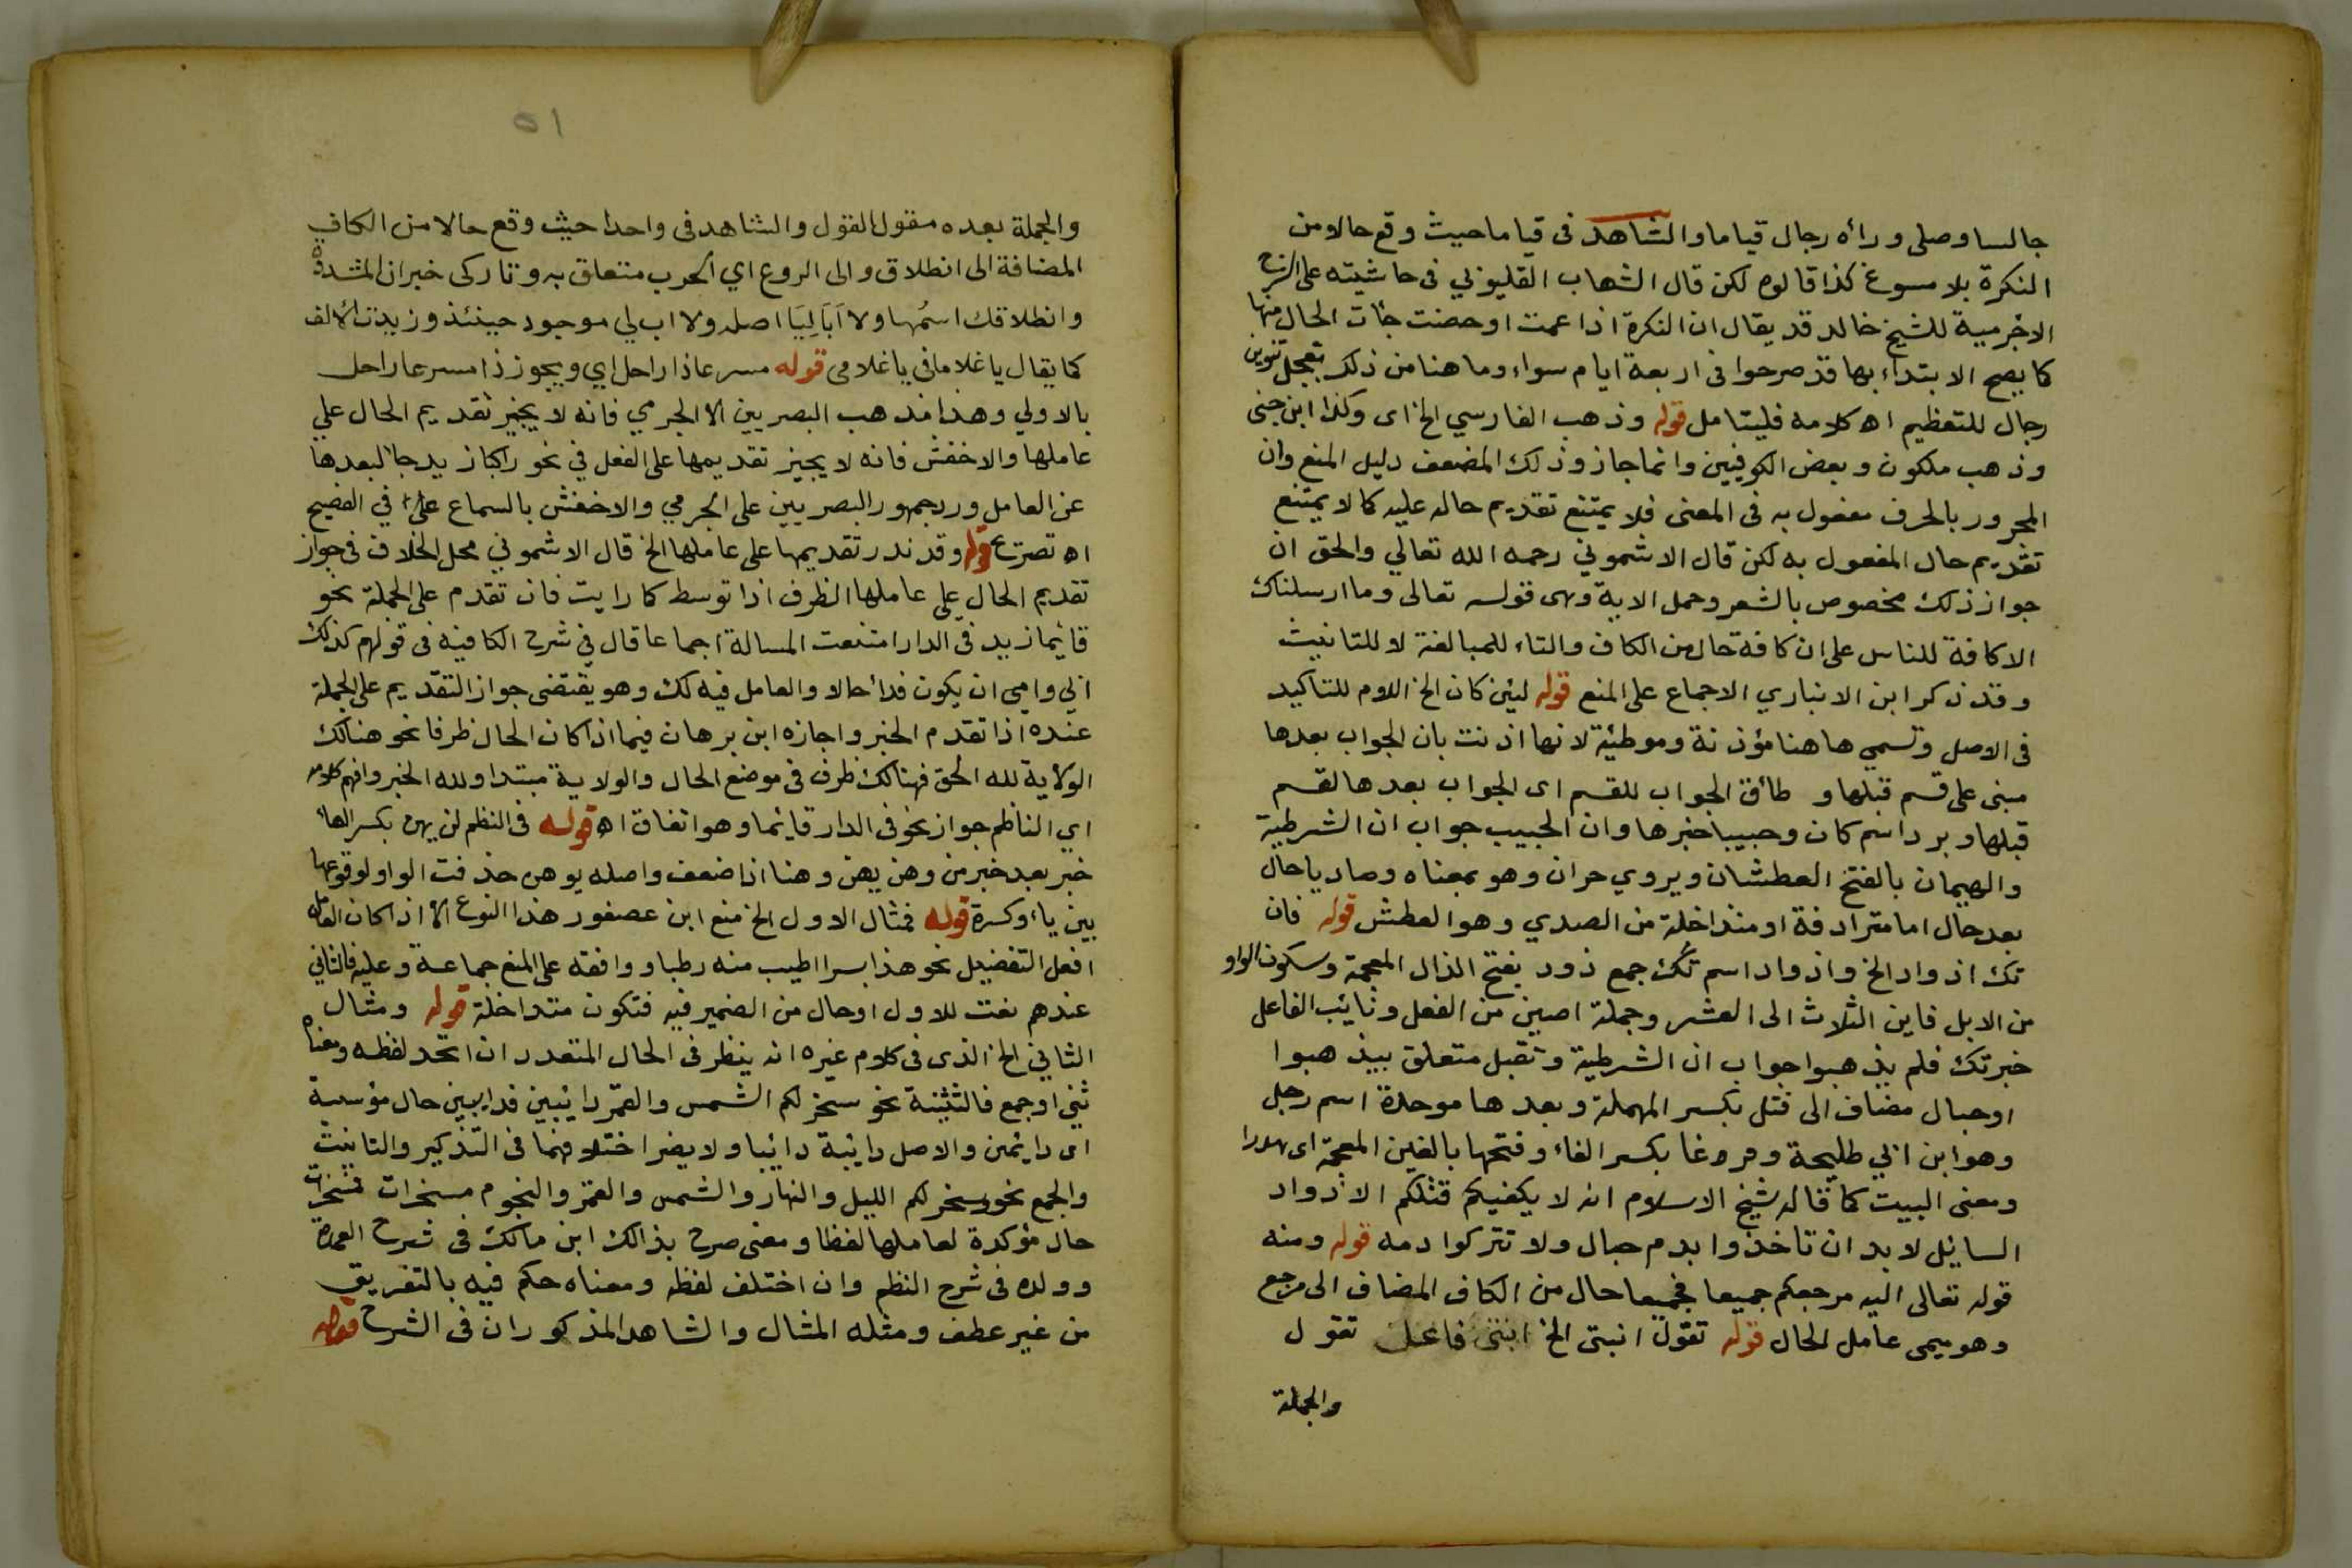 جالسا وصلى ورأه رجال قياما والشاهد فى قياما حيث وقع حالا من
النكرة بلا مسوغ كذا قالوه لكن قال الشهاب القليوبي فى حاشيته على شرح
الاجرمية للشيخ خالد قد يقال ان النكرة اذا عمت او خصت جات الحال منها
كما يصح الابتداء بها قد صرحوا فى اربعة ايام سواء وما هنا من ذلك بجعل تنوين
رجال للتعظيم اه كلامه فليتامل قوله وذهب الفارسي الخ اى وكذا ابن جنى
وذهب ملكون وبعض الكوفيين وانما جاز وذلك المضعف دليل المنع وان
المجرور بالحرف مفعول به فى المعنى فلا يمتنع تقديم حاله عليه كما لا يمتنع
تقديم حال المفعول به لكن قال الاشموني رحمه الله تعالي والحق ان
جواز ذلك مخصوص بالشعر وحمل الاية وهى قوله تعالى وما ارسلناك
الا كافة للناس على ان كافة حال من الكاف والتاء للمبالغة لا للتانيث
وقد ذكر ابن الانباري الاجماع على المنع قوله لئن كان الخ اللام للتأكيد
فى الاصل وتسمى هاهنا مؤذنة وموطئة لانها اذنت بان الجواب بعدها
مبنى على قسم قبلها و طأق الجواب للقسم اى الجواب بعدها لقسم
قبلها وبرد اسم كان وحبيبا خبرها وان الحبيب جواب ان الشرطية
والهيمان بالفتح العطشان ويروي حران وهو بمعناه وصاديا حال
بعد حال اما مترادفة او متداخلة من الصدي وهو العطش قوله فان
تك اذواد الخ واذواد اسم تك جمع ذود بفتح الذال المعجمة وسكون الواو
من الابل فابين الثلاث الى العشر وجملة اصبن من الفعل ونائب الفاعل
خبرتك فلم يذهبوا جواب ان الشرطية وتقبل متعلق بيذهبوا
او حبال مضاف الى قتل بكسر المهملة وبعدها موحدة اسم رجل
وهو ابن اخي طليحة وفرغا بكسر الفاء وفتحها بالغين المعجمة اى هدرا
ومعنى البيت كما قاله شيخ الاسلام انه لا يكفيكم قتلكم الاذواد
السائل لا بد ان تاخذوا بدم حبال ولا تتركوا دمه قوله ومنه
قوله تعالى اليه مرجعكم جميعا فجميعا حال من الكاف المضاف الى مرجع
وهو ميمى عامل الحال قوله تقول انبتى الخ ابنتى فاعل تقول
والجملة
٥١
والجملة بعده مقول القول والشاهد فى واحدا حيث وقع حالا من الكاف
المضافة الى انطلاق والى الروع اي الحرب متعلق به وتاركى خبر ان المشددة
وانطلاقك اسمها ولا اَبَا لِيَا اصله ولا اب لي موجود حينئذ وزيدت الالف
كما يقال يا غلاما فى يا غلامى قوله مسرعا ذا راحل اي ويجوز ذا مسرعا راحل
بالاولي وهذا مذهب البصريين الا الجرمي فانه لا يجيز تقديم الحال علي
عاملها والاخفش فانه لا يجيز تقديمها على الفعل في نحو راكبا زيد جا لبعدها
عن العامل ورد جمهور البصريين على الجرمي والاخفش بالسماع على في الفصيح
اه تصريح قوله وقد ندر تقديمها على عاملها الخ قال الاشموني محل الخلاف فى جواز
تقديم الحال علي عاملها الظرف اذا توسط كما رايت فان تقدم على الجملة نحو
قائما زيد فى الدار امتنعت المسالة اجماعا قال في شرح الكافية فى قولهم كذلك
ابي وامي ان يكون فداً حالا والعامل فيه لك وهو يقتضى جواز التقديم على الجملة
عنده اذا تقدم الخبر واجازه ابن برهان فيما اذا كان الحال ظرفا نحو هنالك
الولاية لله الحق فهنالك ظرف فى موضع الحال والولاية مبتدا ولله الخبر وافهم كلامه
اي الناظم جواز نحو فى الدار قايما وهو اتفاق اه قوله فى النظم لن يهن بكسر الهاء
خبر بعد خبر من وهن يهن وهنا اذا ضعف واصله يوهن حذفت الواو لوقوعها
بين ياء وكسرة قوله فمثال الاول الخ منع ابن عصفور هذا النوع الا اذا كان العامل
افعل التفضيل نحو هذا بسرا اطيب منه رطبا ووافقه على المنع جماعة وعليه فالثاني
عندهم نعت للاول او حال من الضمير فيه فتكون متداخلة قوله ومثال
الثاني الخ الذى فى كلام غيره انه ينظر فى الحال المتعدد ان اتحد لفظه ومعناه
ثني او جمع فالتثنية نحو سخر لكم الشمس والقمر دائبين فدايبين حال مؤسسة
اى دائمين والاصل دائبة دائبا ولا يضر اختلافهما فى التذكير والتانيث
والجمع نحو وسخر لكم الليل والنهار والشمس والقمر والنجوم مسخرات فمسخرات
حال مؤكدة لعاملها لفظا ومعنى صرح بذالك ابن مالك فى شرح العمدة
وولده فى شرح النظم وان اختلف لفظه ومعناه حكم فيه بالتفريق
من غير عطف ومثله المثال والشاهد المذكوران فى الشرح قوله